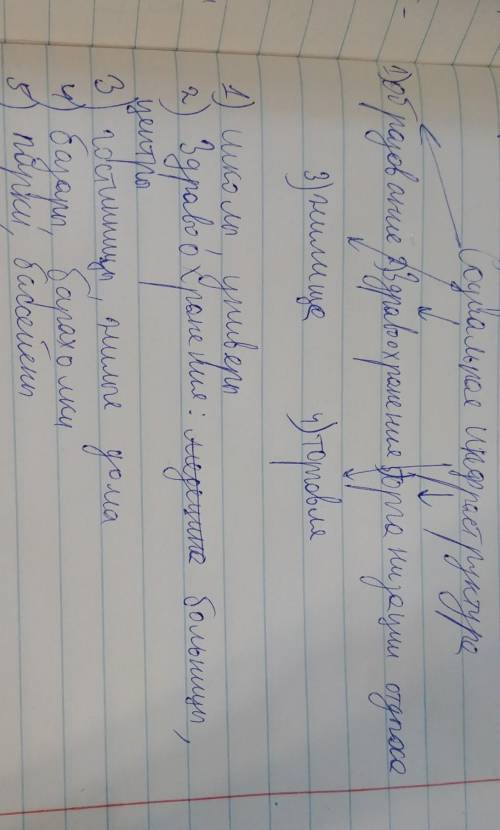 Социальная инфраструктура
1) образование 2) Здравоохранение 5) организации отдыха
3) жилище 4) торговля
1) школы, универы
2) Здравоохранения: медецина больницы,
центры
3) гостиницы, жилые дома
4) базары, барахолки
5) парки, бассейены